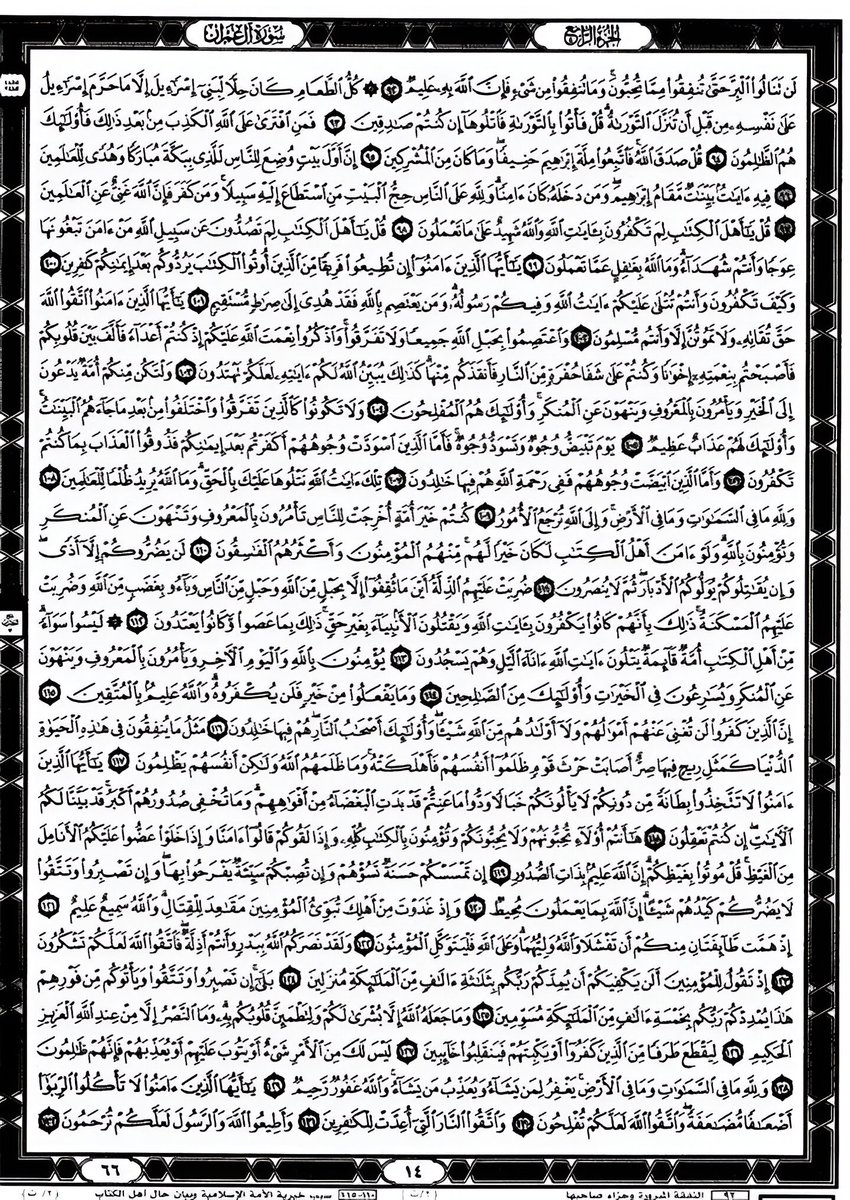 الجزء الرابع
سورة آل عمران
لَن تَنَالُوا۟ الْبِرَّ حَتَّىٰ تُنفِقُوا۟ مِمَّا تُحِبُّونَ ۚ وَمَا تُنفِقُوا۟ مِن شَىْءٍ فَإِنَّ اللَّهَ بِهِۦ عَلِيمٌ ٩٢ ۞ كُلُّ الطَّعَامِ كَانَ حِلًّا لِّبَنِىٓ إِسْرَٰٓءِيلَ إِلَّا مَا حَرَّمَ إِسْرَٰٓءِيلُ
عَلَىٰ نَفْسِهِۦ مِن قَبْلِ أَن تُنَزَّلَ التَّوْرَىٰةُ ۗ قُلْ فَأْتُوا۟ بِالتَّوْرَىٰةِ فَاتْلُوهَآ إِن كُنتُمْ صَٰدِقِينَ ٩٣ فَمَنِ افْتَرَىٰ عَلَى اللَّهِ الْكَذِبَ مِنۢ بَعْدِ ذَٰلِكَ فَأُو۟لَٰٓئِكَ
هُمُ الظَّٰلِمُونَ ٩٤ قُلْ صَدَقَ اللَّهُ ۗ فَاتَّبِعُوا۟ مِلَّةَ إِبْرَٰهِيمَ حَنِيفًا وَمَا كَانَ مِنَ الْمُشْرِكِينَ ٩٥ إِنَّ أَوَّلَ بَيْتٍ وُضِعَ لِلنَّاسِ لَلَّذِى بِبَكَّةَ مُبَارَكًا وَهُدًى لِّلْعَٰلَمِينَ
٩٦ فِيهِ ءَايَٰتٌۢ بَيِّنَٰتٌ مَّقَامُ إِبْرَٰهِيمَ ۖ وَمَن دَخَلَهُۥ كَانَ ءَامِنًا ۗ وَلِلَّهِ عَلَى النَّاسِ حِجُّ الْبَيْتِ مَنِ اسْتَطَاعَ إِلَيْهِ سَبِيلًا ۚ وَمَن كَفَرَ فَإِنَّ اللَّهَ غَنِىٌّ عَنِ الْعَٰلَمِينَ
٩٧ قُلْ يَٰٓأَهْلَ الْكِتَٰبِ لِمَ تَكْفُرُونَ بِـَٔايَٰتِ اللَّهِ وَاللَّهُ شَهِيدٌ عَلَىٰ مَا تَعْمَلُونَ ٩٨ قُلْ يَٰٓأَهْلَ الْكِتَٰبِ لِمَ تَصُدُّونَ عَن سَبِيلِ اللَّهِ مَنْ ءَامَنَ تَبْغُونَهَا
عِوَجًا وَأَنتُمْ شُهَدَآءُ ۗ وَمَا اللَّهُ بِغَٰفِلٍ عَمَّا تَعْمَلُونَ ٩٩ يَٰٓأَيُّهَا الَّذِينَ ءَامَنُوٓا۟ إِن تُطِيعُوا۟ فَرِيقًا مِّنَ الَّذِينَ أُوتُوا۟ الْكِتَٰبَ يَرُدُّوكُم بَعْدَ إِيمَٰنِكُمْ كَٰفِرِينَ ١٠٠
وَكَيْفَ تَكْفُرُونَ وَأَنتُمْ تُتْلَىٰ عَلَيْكُمْ ءَايَٰتُ اللَّهِ وَفِيكُمْ رَسُولُهُۥ ۗ وَمَن يَعْتَصِم بِاللَّهِ فَقَدْ هُدِىَ إِلَىٰ صِرَٰطٍ مُّسْتَقِيمٍ ١٠١ يَٰٓأَيُّهَا الَّذِينَ ءَامَنُوا۟ اتَّقُوا۟ اللَّهَ
حَقَّ تُقَاتِهِۦ وَلَا تَمُوتُنَّ إِلَّا وَأَنتُم مُّسْلِمُونَ ١٠٢ وَاعْتَصِمُوا۟ بِحَبْلِ اللَّهِ جَمِيعًا وَلَا تَفَرَّقُوا۟ ۚ وَاذْكُرُوا۟ نِعْمَتَ اللَّهِ عَلَيْكُمْ إِذْ كُنتُمْ أَعْدَآءً فَأَلَّفَ بَيْنَ قُلُوبِكُمْ
فَأَصْبَحْتُم بِنِعْمَتِهِۦٓ إِخْوَٰنًا وَكُنتُمْ عَلَىٰ شَفَا حُفْرَةٍ مِّنَ النَّارِ فَأَنقَذَكُم مِّنْهَا ۗ كَذَٰلِكَ يُبَيِّنُ اللَّهُ لَكُمْ ءَايَٰتِهِۦ لَعَلَّكُمْ تَهْتَدُونَ ١٠٣ وَلْتَكُن مِّنكُمْ أُمَّةٌ يَدْعُونَ
إِلَى الْخَيْرِ وَيَأْمُرُونَ بِالْمَعْرُوفِ وَيَنْهَوْنَ عَنِ الْمُنكَرِ ۚ وَأُو۟لَٰٓئِكَ هُمُ الْمُفْلِحُونَ ١٠٤ وَلَا تَكُونُوا۟ كَالَّذِينَ تَفَرَّقُوا۟ وَاخْتَلَفُوا۟ مِنۢ بَعْدِ مَا جَآءَهُمُ الْبَيِّنَٰتُ ۚ
وَأُو۟لَٰٓئِكَ لَهُمْ عَذَابٌ عَظِيمٌ ١٠٥ يَوْمَ تَبْيَضُّ وُجُوهٌ وَتَسْوَدُّ وُجُوهٌ ۚ فَأَمَّا الَّذِينَ اسْوَدَّتْ وُجُوهُهُمْ أَكَفَرْتُم بَعْدَ إِيمَٰنِكُمْ فَذُوقُوا۟ الْعَذَابَ بِمَا كُنتُمْ
تَكْفُرُونَ ١٠٦ وَأَمَّا الَّذِينَ ابْيَضَّتْ وُجُوهُهُمْ فَفِى رَحْمَةِ اللَّهِ هُمْ فِيهَا خَٰلِدُونَ ١٠٧ تِلْكَ ءَايَٰتُ اللَّهِ نَتْلُوهَا عَلَيْكَ بِالْحَقِّ ۗ وَمَا اللَّهُ يُرِيدُ ظُلْمًا لِّلْعَٰلَمِينَ ١٠٨
وَلِلَّهِ مَا فِى السَّمَٰوَٰتِ وَمَا فِى الْأَرْضِ ۚ وَإِلَى اللَّهِ تُرْجَعُ الْأُمُورُ ١٠٩ كُنتُمْ خَيْرَ أُمَّةٍ أُخْرِجَتْ لِلنَّاسِ تَأْمُرُونَ بِالْمَعْرُوفِ وَتَنْهَوْنَ عَنِ الْمُنكَرِ
وَتُؤْمِنُونَ بِاللَّهِ ۗ وَلَوْ ءَامَنَ أَهْلُ الْكِتَٰبِ لَكَانَ خَيْرًا لَّهُم ۚ مِّنْهُمُ الْمُؤْمِنُونَ وَأَكْثَرُهُمُ الْفَٰسِقُونَ ١١٠ لَن يَضُرُّوكُمْ إِلَّآ أَذًى ۖ
وَإِن يُقَٰتِلُوكُمْ يُوَلُّوكُمُ الْأَدْبَارَ ثُمَّ لَا يُنصَرُونَ ١١١ ضُرِبَتْ عَلَيْهِمُ الذِّلَّةُ أَيْنَ مَا ثُقِفُوٓا۟ إِلَّا بِحَبْلٍ مِّنَ اللَّهِ وَحَبْلٍ مِّنَ النَّاسِ وَبَآءُو بِغَضَبٍ مِّنَ اللَّهِ وَضُرِبَتْ
عَلَيْهِمُ الْمَسْكَنَةُ ۚ ذَٰلِكَ بِأَنَّهُمْ كَانُوا۟ يَكْفُرُونَ بِـَٔايَٰتِ اللَّهِ وَيَقْتُلُونَ الْأَنۢبِيَآءَ بِغَيْرِ حَقٍّ ۚ ذَٰلِكَ بِمَا عَصَوا۟ وَّكَانُوا۟ يَعْتَدُونَ ١١٢ ۞ لَيْسُوا۟ سَوَآءً ۗ
مِّنْ أَهْلِ الْكِتَٰبِ أُمَّةٌ قَآئِمَةٌ يَتْلُونَ ءَايَٰتِ اللَّهِ ءَانَآءَ الَّيْلِ وَهُمْ يَسْجُدُونَ ١١٣ يُؤْمِنُونَ بِاللَّهِ وَالْيَوْمِ الْءَاخِرِ وَيَأْمُرُونَ بِالْمَعْرُوفِ وَيَنْهَوْنَ
عَنِ الْمُنكَرِ وَيُسَٰرِعُونَ فِى الْخَيْرَٰتِ وَأُو۟لَٰٓئِكَ مِنَ الصَّٰلِحِينَ ١١٤ وَمَا يَفْعَلُوا۟ مِنْ خَيْرٍ فَلَن يُكْفَرُوهُ ۗ وَاللَّهُ عَلِيمٌۢ بِالْمُتَّقِينَ ١١٥
إِنَّ الَّذِينَ كَفَرُوا۟ لَن تُغْنِىَ عَنْهُمْ أَمْوَٰلُهُمْ وَلَآ أَوْلَٰدُهُم مِّنَ اللَّهِ شَيْـًٔا ۖ وَأُو۟لَٰٓئِكَ أَصْحَٰبُ النَّارِ ۚ هُمْ فِيهَا خَٰلِدُونَ ١١٦ مَثَلُ مَا يُنفِقُونَ فِى هَٰذِهِ الْحَيَوٰةِ
الدُّنْيَا كَمَثَلِ رِيحٍ فِيهَا صِرٌّ أَصَابَتْ حَرْثَ قَوْمٍ ظَلَمُوٓا۟ أَنفُسَهُمْ فَأَهْلَكَتْهُ ۚ وَمَا ظَلَمَهُمُ اللَّهُ وَلَٰكِنْ أَنفُسَهُمْ يَظْلِمُونَ ١١٧ يَٰٓأَيُّهَا الَّذِينَ
ءَامَنُوا۟ لَا تَتَّخِذُوا۟ بِطَانَةً مِّن دُونِكُمْ لَا يَأْلُونَكُمْ خَبَالًا وَدُّوا۟ مَا عَنِتُّمْ قَدْ بَدَتِ الْبَغْضَآءُ مِنْ أَفْوَٰهِهِمْ وَمَا تُخْفِى صُدُورُهُمْ أَكْبَرُ ۚ قَدْ بَيَّنَّا لَكُمُ
الْءَايَٰتِ ۖ إِن كُنتُمْ تَعْقِلُونَ ١١٨ هَٰٓأَنتُمْ أُو۟لَآءِ تُحِبُّونَهُمْ وَلَا يُحِبُّونَكُمْ وَتُؤْمِنُونَ بِالْكِتَٰبِ كُلِّهِۦ وَإِذَا لَقُوكُمْ قَالُوٓا۟ ءَامَنَّا وَإِذَا خَلَوْا۟ عَضُّوا۟ عَلَيْكُمُ الْأَنَامِلَ
مِنَ الْغَيْظِ ۚ قُلْ مُوتُوا۟ بِغَيْظِكُمْ ۗ إِنَّ اللَّهَ عَلِيمٌۢ بِذَاتِ الصُّدُورِ ١١٩ إِن تَمْسَسْكُمْ حَسَنَةٌ تَسُؤْهُمْ وَإِن تُصِبْكُمْ سَيِّئَةٌ يَفْرَحُوا۟ بِهَا ۖ وَإِن تَصْبِرُوا۟ وَتَتَّقُوا۟
لَا يَضُرُّكُمْ كَيْدُهُمْ شَيْـًٔا ۗ إِنَّ اللَّهَ بِمَا يَعْمَلُونَ مُحِيطٌ ١٢٠ وَإِذْ غَدَوْتَ مِنْ أَهْلِكَ تُبَوِّئُ الْمُؤْمِنِينَ مَقَٰعِدَ لِلْقِتَالِ ۗ وَاللَّهُ سَمِيعٌ عَلِيمٌ ١٢١
إِذْ هَمَّت طَّآئِفَتَانِ مِنكُمْ أَن تَفْشَلَا وَاللَّهُ وَلِيُّهُمَا ۗ وَعَلَى اللَّهِ فَلْيَتَوَكَّلِ الْمُؤْمِنُونَ ١٢٢ وَلَقَدْ نَصَرَكُمُ اللَّهُ بِبَدْرٍ وَأَنتُمْ أَذِلَّةٌ ۖ فَاتَّقُوا۟ اللَّهَ لَعَلَّكُمْ تَشْكُرُونَ
١٢٣ إِذْ تَقُولُ لِلْمُؤْمِنِينَ أَلَن يَكْفِيَكُمْ أَن يُمِدَّكُمْ رَبُّكُم بِثَلَٰثَةِ ءَالَٰفٍ مِّنَ الْمَلَٰٓئِكَةِ مُنزَلِينَ ١٢٤ بَلَىٰٓ ۚ إِن تَصْبِرُوا۟ وَتَتَّقُوا۟ وَيَأْتُوكُم مِّن فَوْرِهِمْ
هَٰذَا يُمْدِدْكُمْ رَبُّكُم بِخَمْسَةِ ءَالَٰفٍ مِّنَ الْمَلَٰٓئِكَةِ مُسَوِّمِينَ ١٢٥ وَمَا جَعَلَهُ اللَّهُ إِلَّا بُشْرَىٰ لَكُمْ وَلِتَطْمَئِنَّ قُلُوبُكُم بِهِۦ ۗ وَمَا النَّصْرُ إِلَّا مِنْ عِندِ اللَّهِ الْعَزِيزِ
الْحَكِيمِ ١٢٦ لِيَقْطَعَ طَرَفًا مِّنَ الَّذِينَ كَفَرُوٓا۟ أَوْ يَكْبِتَهُمْ فَيَنقَلِبُوا۟ خَآئِبِينَ ١٢٧ لَيْسَ لَكَ مِنَ الْأَمْرِ شَىْءٌ أَوْ يَتُوبَ عَلَيْهِمْ أَوْ يُعَذِّبَهُمْ فَإِنَّهُمْ ظَٰلِمُونَ
١٢٨ وَلِلَّهِ مَا فِى السَّمَٰوَٰتِ وَمَا فِى الْأَرْضِ ۚ يَغْفِرُ لِمَن يَشَآءُ وَيُعَذِّبُ مَن يَشَآءُ ۚ وَاللَّهُ غَفُورٌ رَّحِيمٌ ١٢٩ يَٰٓأَيُّهَا الَّذِينَ ءَامَنُوا۟ لَا تَأْكُلُوا۟ الرِّبَوٰٓا۟
أَضْعَٰفًا مُّضَٰعَفَةً ۖ وَاتَّقُوا۟ اللَّهَ لَعَلَّكُمْ تُفْلِحُونَ ١٣٠ وَاتَّقُوا۟ النَّارَ الَّتِىٓ أُعِدَّتْ لِلْكَٰفِرِينَ ١٣١ وَأَطِيعُوا۟ اللَّهَ وَالرَّسُولَ لَعَلَّكُمْ تُرْحَمُونَ ١٣٢
١٤
٦٦
٩٢ النفقة المبرورة وجزاء صاحبها (٢/ت)
١١٠-١١٥ خيرية الأمة الإسلامية وبيان حال أهل الكتاب (٢/ت)